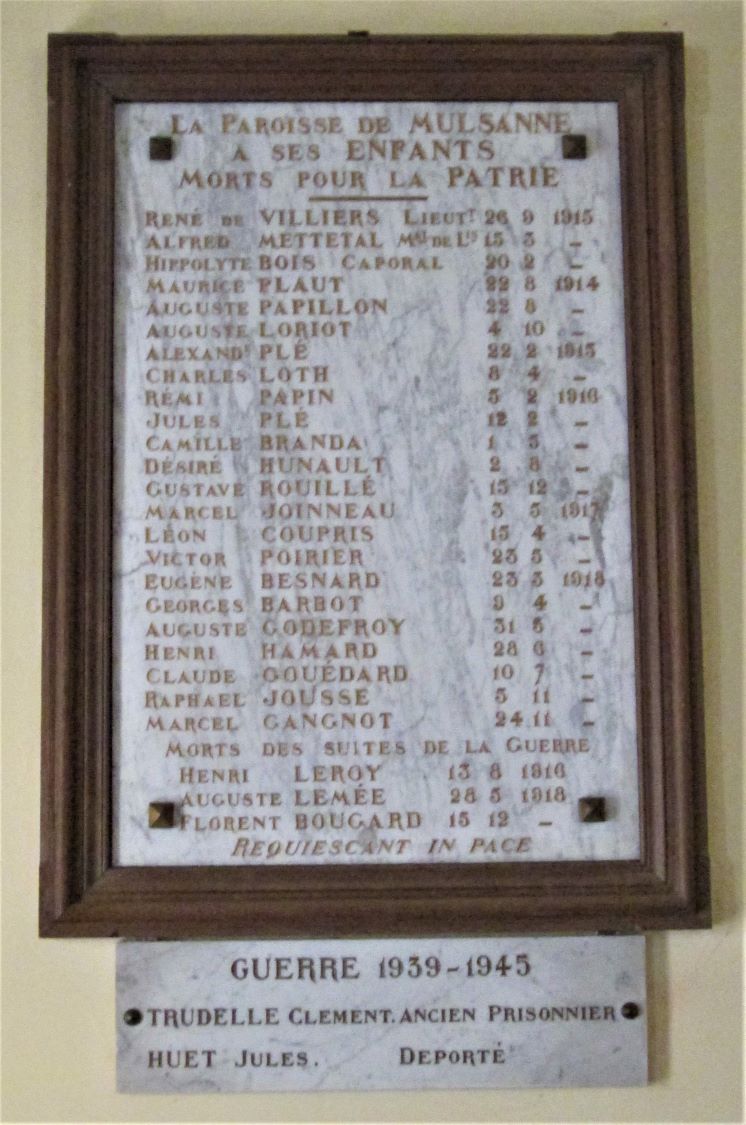 LA PAROISSE DE MULSANNE
A SES ENFANTS
MORTS POUR LA PATRIE
RENÉ DE VILLIERS LIEUTT 26 9 1915
ALFRED METTETAL MAL DE LIS 15 3 –
HIPPOLYTE BOIS CAPORAL 20 2 –
MAURICE PLAUT 22 8 1914
AUGUSTE PAPILLON 22 8 –
AUGUSTE LORIOT 4 10 –
ALEXANDE PLÉ 22 2 1915
CHARLES LOTH 8 4 –
RÉMI PAPIN 5 2 1916
JULES PLÉ 12 2 –
CAMILLE BRANDA 1 3 –
DÉSIRÉ HUNAULT 2 8 –
GUSTAVE ROUILLÉ 15 12 –
MARCEL JOINNEAU 3 5 1917
LÉON COUPRIS 15 4 –
VICTOR POIRIER 23 5 –
EUGÈNE BESNARD 23 3 1918
GEORGES BARBOT 9 4 –
AUGUSTE GODEFROY 31 5 –
HENRI HAMARD 28 6 –
CLAUDE GOUÉDARD 10 7 –
RAPHAEL JOUSSE 5 11 –
MARCEL GANGNOT 24 11 –
MORTS DES SUITES DE LA GUERRE
HENRI LEROY 13 8 1916
AUGUSTE LEMÉE 28 5 1918
FLORENT BOUGARD 15 12 –
REQUIESCANT IN PACE
GUERRE 1939-1945
TRUDELLE CLEMENT. ANCIEN PRISONNIER
HUET JULES. DEPORTÉ